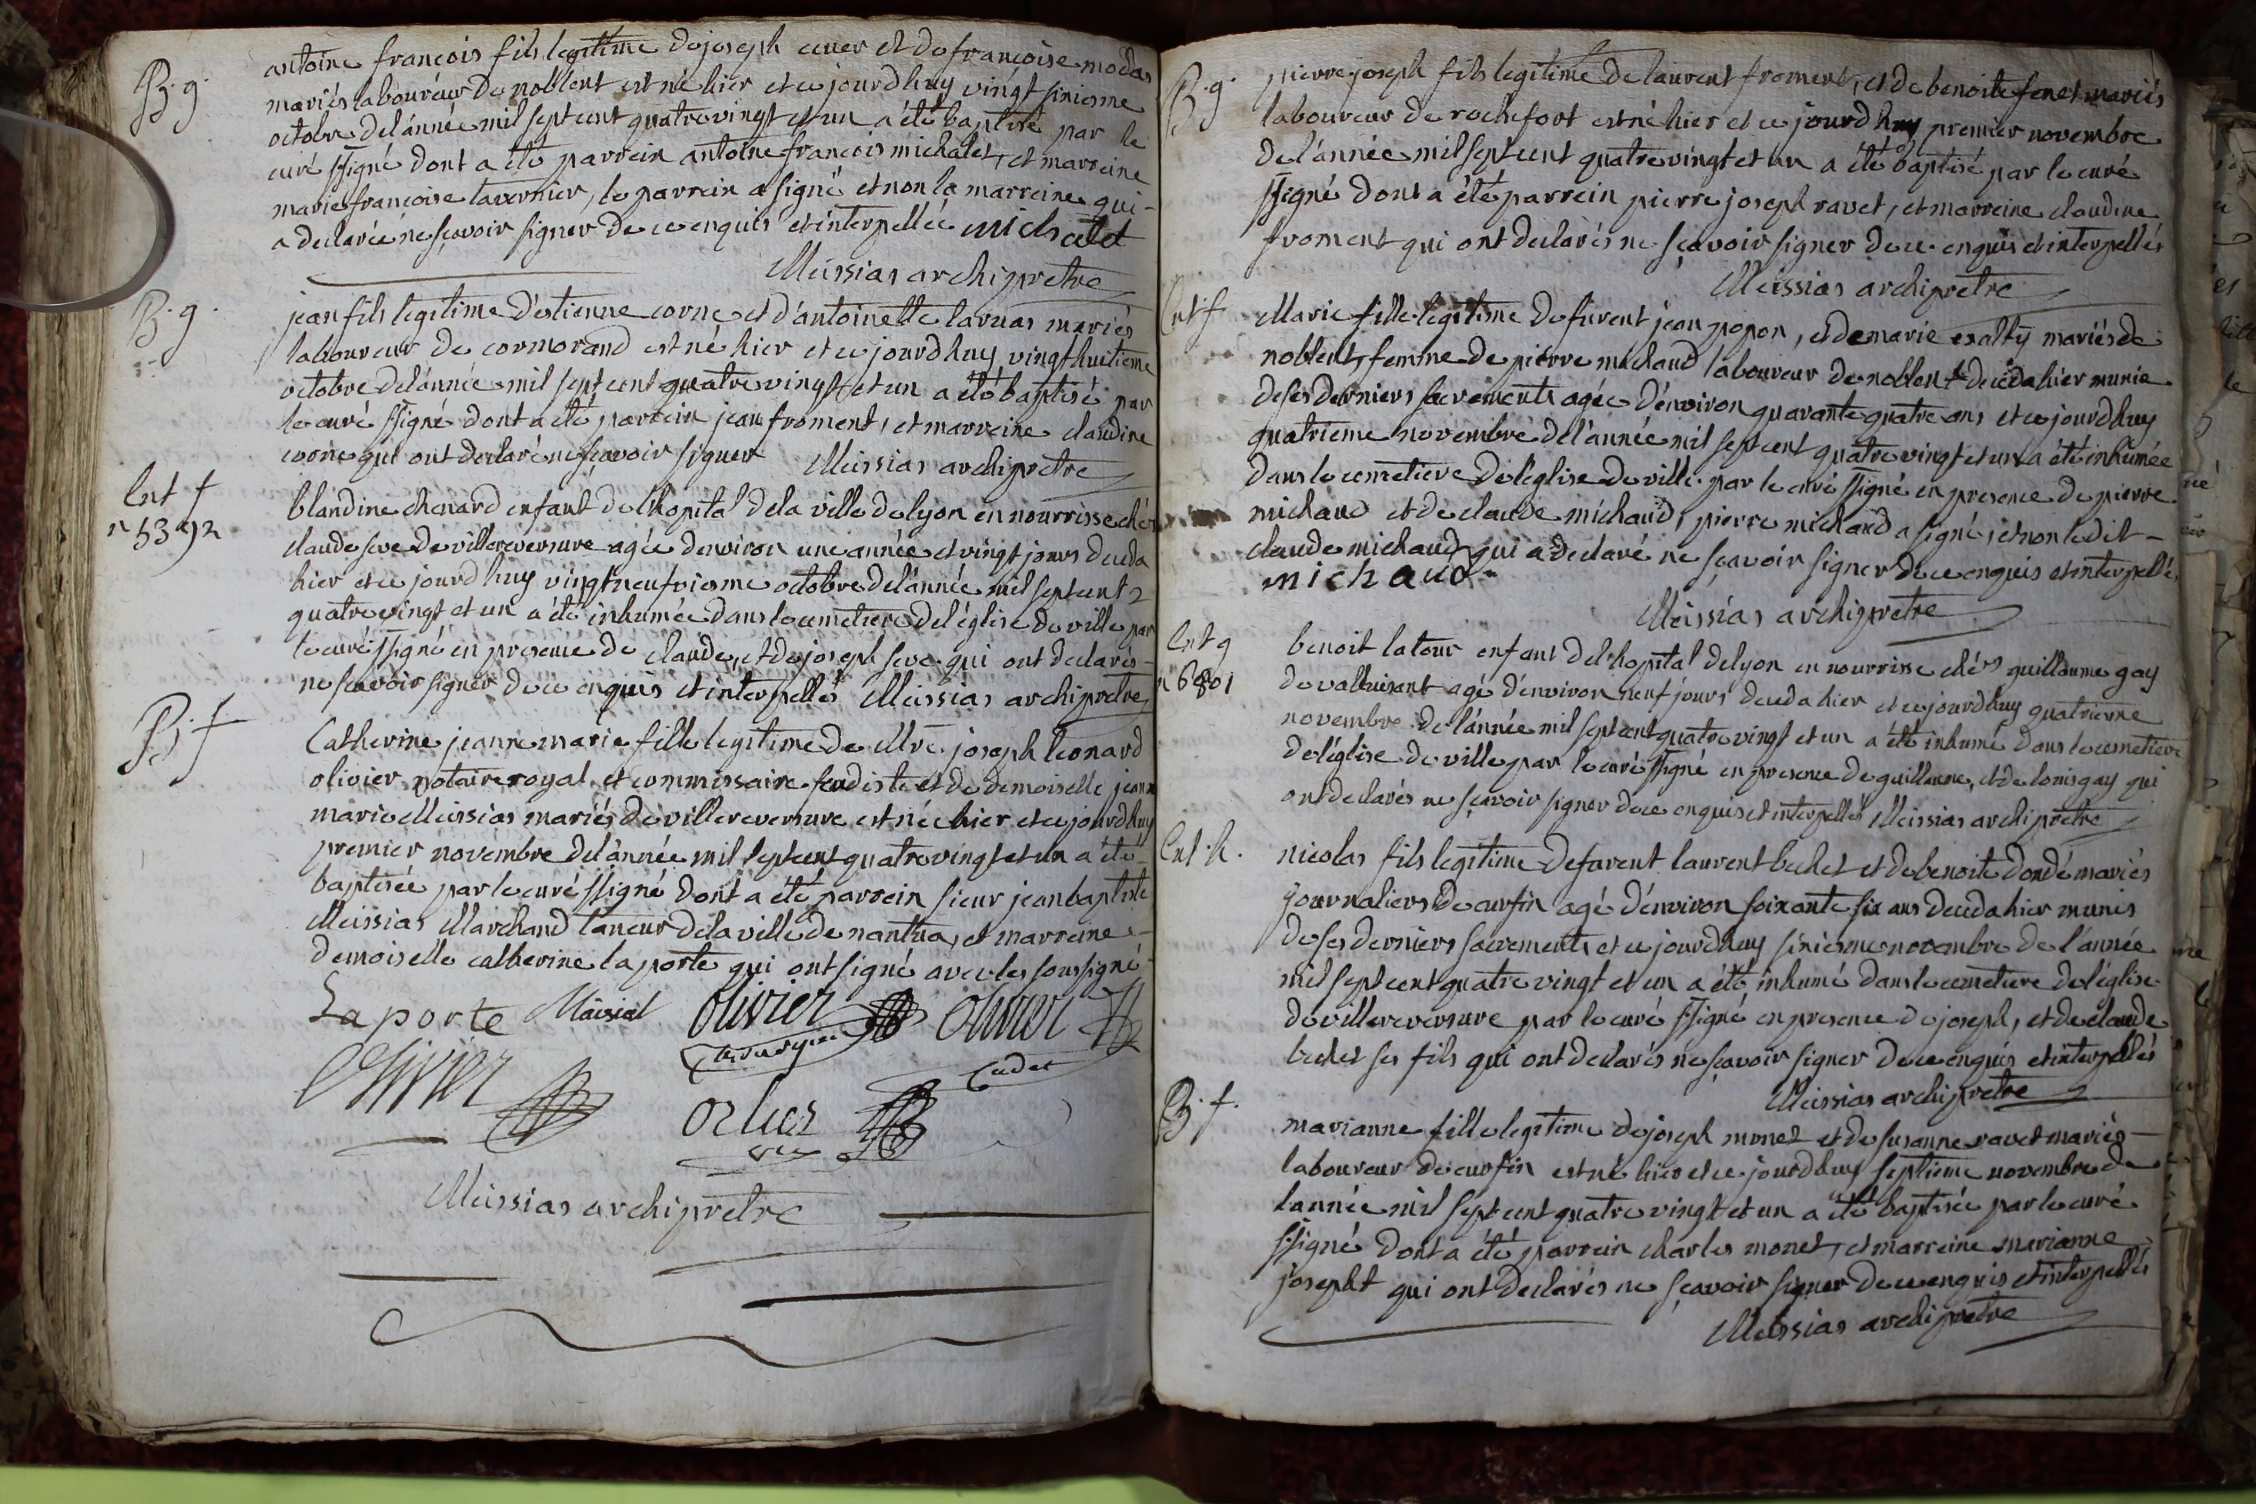 B. g.
antoine françois fils legitime de joseph cuer et de françoise modas
mariés laboureur de noblent est né hier et ce jourdhuy vingt sixiesme
octobre de lánnée mil sept cent quatre vingt et un a été baptisé par le
curé ssigné dont a été parrein antoine francois michalet, et marreine
marie françoise tavernier, le parrein a signé et non la marreine qui -
a declarée ne sçavoir signer de ce enquis et interpellée michalet
Meissias archipretre
B. g.
jean fils legitime d'estienne corne et d'antoinette laruas mariés
laboureur de cormorand est né hier et ce jourdhuy vingt huitieme
octobre de lánnée mil sept cent quatre vingt et un a été baptisé par
le curé ssigné dont a été parrein jean froment, et marreine claudine
corne qui ont declaré ne sçavoir signer Meissias archipretre
Ent f
n 5392
blandine chenard enfant de lhopital de la ville de lyon en nourrisse chés
claude seve de villereversure agée denviron une année et vingt jours deceda
hier et ce jourdhuy vingt neufviesme octobre de lánnée mil sept cent
quatre vingt et un a été inhumée dans le cemetiere de léglise de ville par
le curé ssigné en presence de claude, et de joseph seve qui ont declarés -
ne sçavoir signer de ce enquis et interpellés Meissias archipretre
B. f
Catherine jeanne marie fille legitime de Mtre joseph leonard
olivier notaire royal et commissaire feudiste et de demoiselle jeanne
marie Meissias mariés de villereversure est née hier et ce jourdhuy
premier novembre de lánnée mil sept cent quatre vingt et un a été
baptisée par le curé ssigné dont a été parrein sieur jean baptiste
Meissias Marchand tanneur de la ville de nantua, et marreine -
demoiselle catherine laporte qui ont signé avec les soussigné
Laporte Maissiat olivier olivier
cadet
Olivier
Meissias archipretre
B. g.
pierre joseph fils legitime de laurent froment, et de benoite fenet mariés
laboureur de rochefort est né hier et ce jourdhuy premier novembre
de lánnée mil sept cent quatre vingt et un a été baptisé par le curé
ssigné dont a été parrein pierre joseph ravet, et marreine claudine
froment qui ont declarés ne sçavoir signer de ce enquis et interpellés
Meissias archipretre
Ent f
Marie fille legitime de furent jean popon, et de marie exalty mariés de
noblent, femme de pierre michaud laboureur de noblent deceda hier munie
de ses derniers sacrements agée d'environ quarante quatre ans et ce jourdhuy
quatrieme novembre de l'année mil sept cent quatre vingt et un a été inhumée
dans le cemetiere de leglise de ville par le curé ssigné en presence de pierre
michaud et de claude michaud, pierre michaud a signé, et non ledit -
claude michaud qui a declaré ne sçavoir signer de ce enquis et interpellé
michaud
Meissias archipretre
Ent g
n 6801
benoit latour enfant de lhopital de lyon en nourrisse chés guillaume gay
de valluisant agé d'environ neuf jours deceda hier et ce jourdhuy quatrieme
novembre de lánnée mil sept cent quatre vingt et un a été inhumé dans le cemetiere
de léglise de ville par le curé ssigné en presence de guillaume, et de louis gay qui
ont declarés ne sçavoir signer de ce enquis et interpellés Meissias archipretre
Ent. h.
nicolas fils legitime de furent laurent bechet et de benoite dondé mariés
journaliers de curfin agé d'environ soixante six ans deceda hier munis
de ses derniers sacrements et ce jourdhuy sixiesme novembre de l'année
mil sept cent quatre vingt et un a été inhumé dans le cemetiere de léglise
de villereversure par le curé ssigné en presence de joseph, et de claude
bechet ses fils qui ont declarés ne sçavoir signer de ce enquis et interpellés
Meissias archipretre
B. f.
marianne fille legitime de joseph monet et de susanne ravet mariés -
laboureur de curfin est né hier et ce jourdhuy septieme novembre de
lánnée mil sept cent quatre vingt et un a été baptisée par le curé
ssigné dont a été parrein charles monet, et marreine marianne
josepht qui ont declarés ne sçavoir signer de ce enquis et interpellés
Meissias archipretre